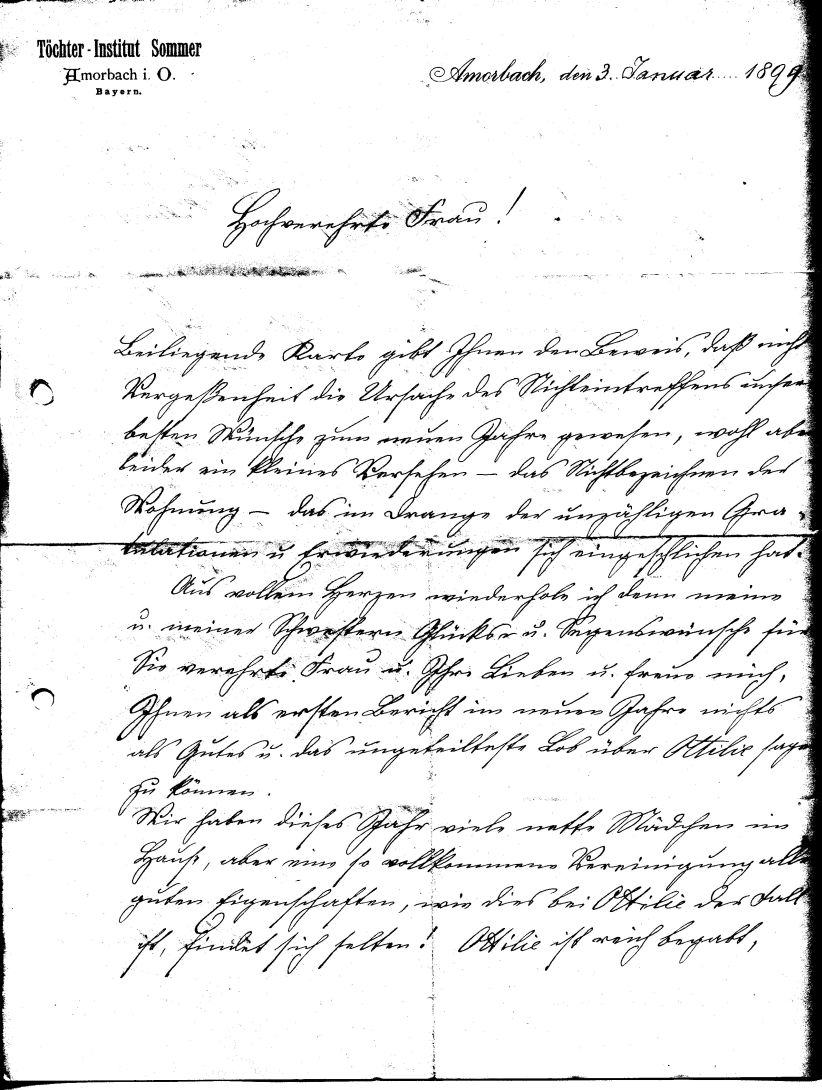 Töchter-Institut Sommer
Amorbach i. O.
Bayern.
Amorbach, den 3. Januar 1899
Hochverehrte Frau!
Beiliegende Karte gibt Ihnen den Beweis, daß nicht
Vergeßenheit die Ursache des Nichteintreffens unser
besten Wünsche zum neuen Jahre gewesen, wohl abe
leider ein kleines Versehen – das Nichtbezeichnen der
Wohnung – das im Drange der unzähligen Gra-
tulationen u Erwiederungen sich eingeschlichen hat.
Aus vollem Herzen wiederhole ich denn meine
u. meiner Schwestern Glücks- u. Segenswünsche für
Sie verehrte Frau u. Ihre Lieben u. freue mich,
Ihnen als ersten Bericht im neuen Jahre nichts
als Gutes u. das ungeteilteste Lob über Ottilie sage
zu können.
Wir haben dieses Jahr viele nette Mädchen im
Hause, aber eine so vollkommene Vereinigung alle
guten Eigenschaften, wie dies bei Ottilie der Fall
ist, findet sich selten! Ottilie ist reich begabt,